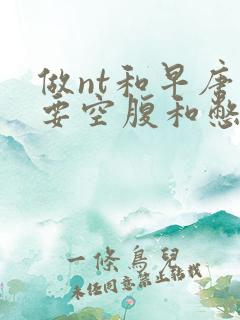 做nt和早唐
要空腹和憋
一條鳥兒
未经同意禁止转载